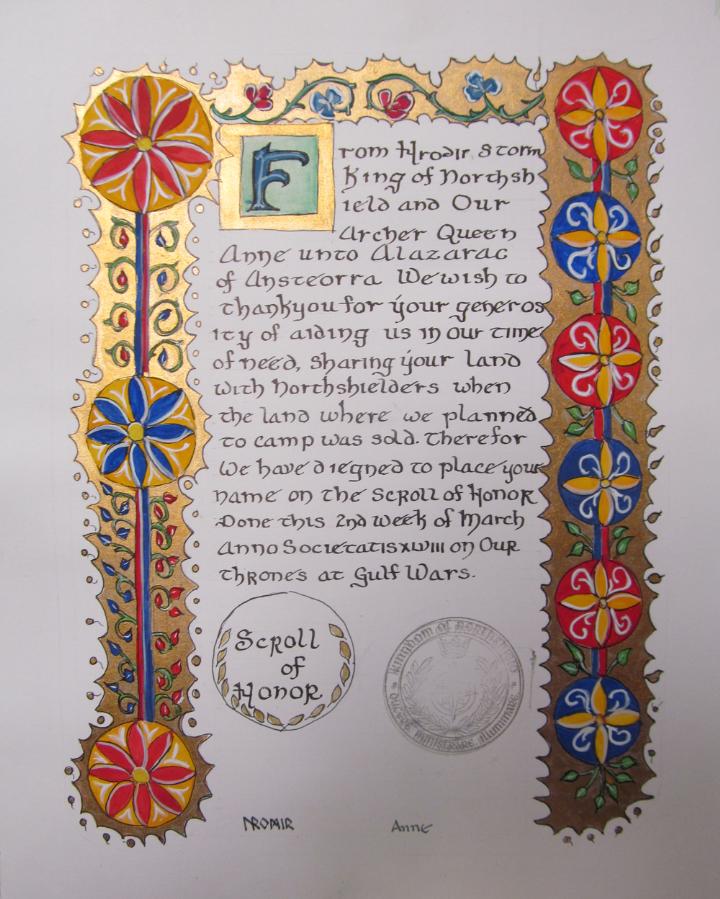 From Hrodir, Storm
King of Northsh
ield and Our
Archer Queen
Anne unto Alazarac
of Ansteorra We wish to
thankyou for your generos
ity of aiding us in our time
of need, sharing your land
with Northshielders when
the land where we planned
to camp was sold. Therefor
We have diegned to place your
name on the Scroll of Honor
Done this 2nd week of March
Anno Societatis XLVIII on Our
thrones at Gulf Wars.
Scroll
of
Honor
Kingdom of Northshield
Anne